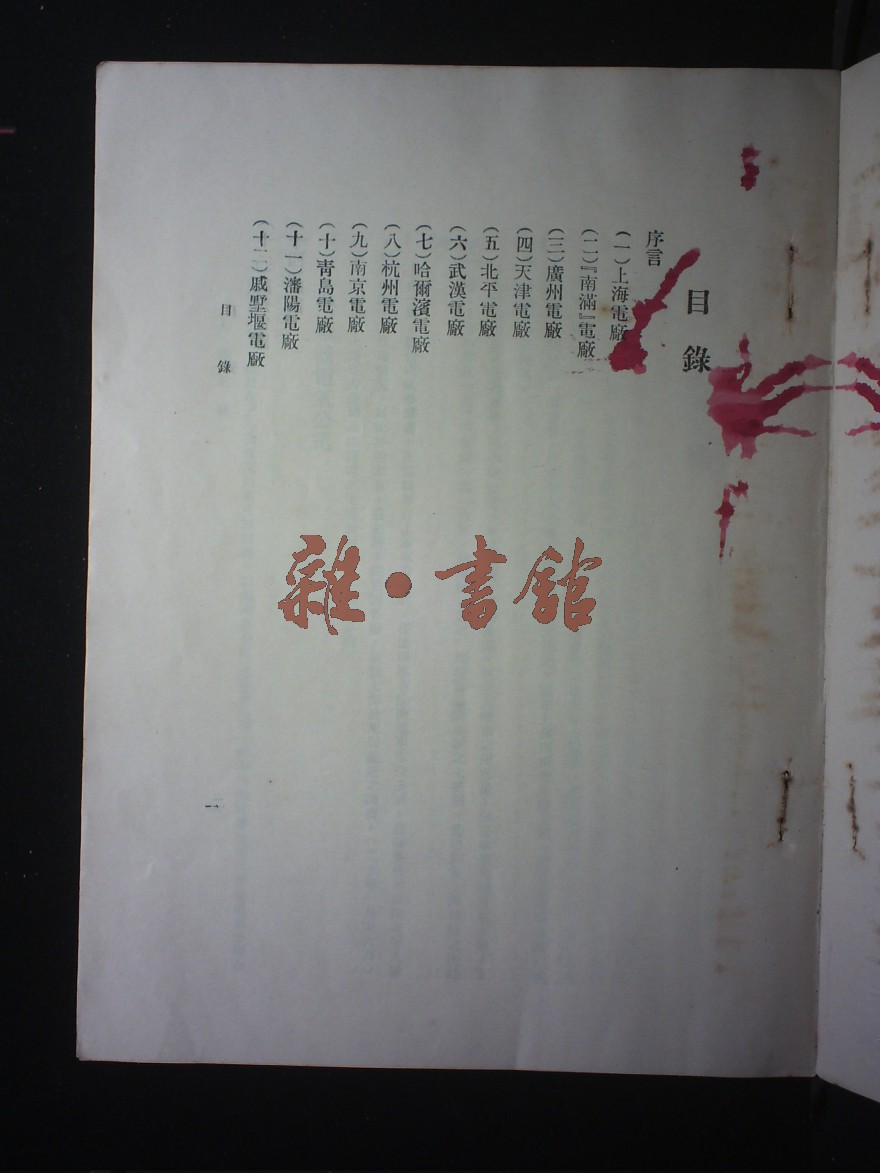 目錄
序言
(一)上海電廠
(二)『南滿』電廠
(三)廣州電廠
(四)天津電廠
(五)北平電廠
(六)武漢電廠
(七)哈爾濱電廠
(八)杭州電廠
(九)南京電廠
(十)靑島電廠
(十一)瀋陽電廠
(十二)戚墅堰電廠
目錄
一
雜·書館